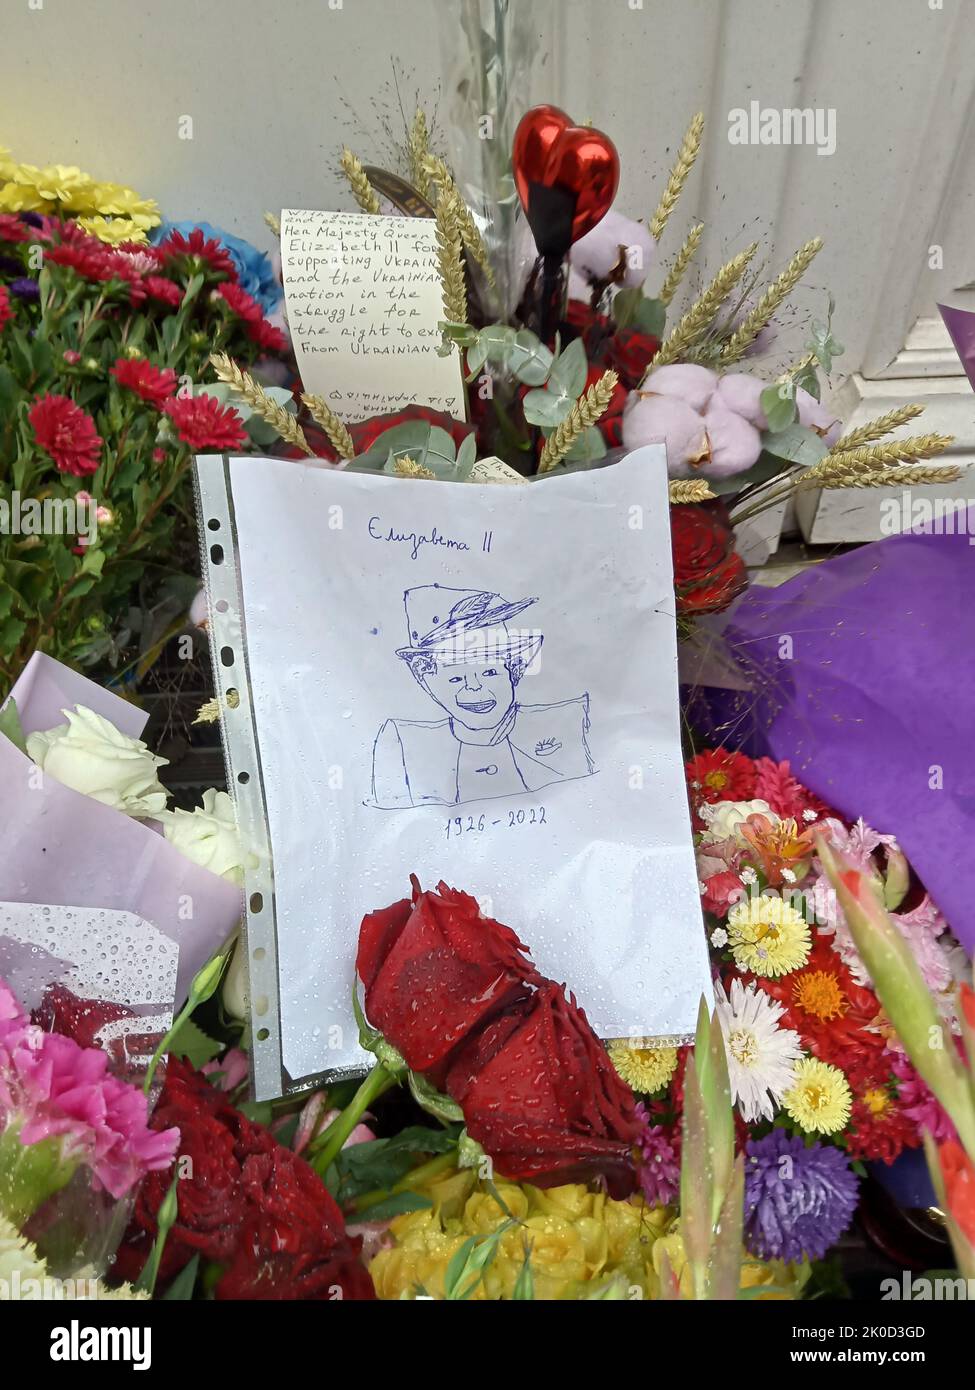 and respect to
Her Majesty Queen
Elizabeth II for
supporting UKRAIN
and the UKRAINIAN
nation in the
struggle for
the right to exi
From UKRAINIANS
Від українців♡
Єлизавета II
1926-2022
alamy
Image ID: 2K0D3GD
www.alamy.com